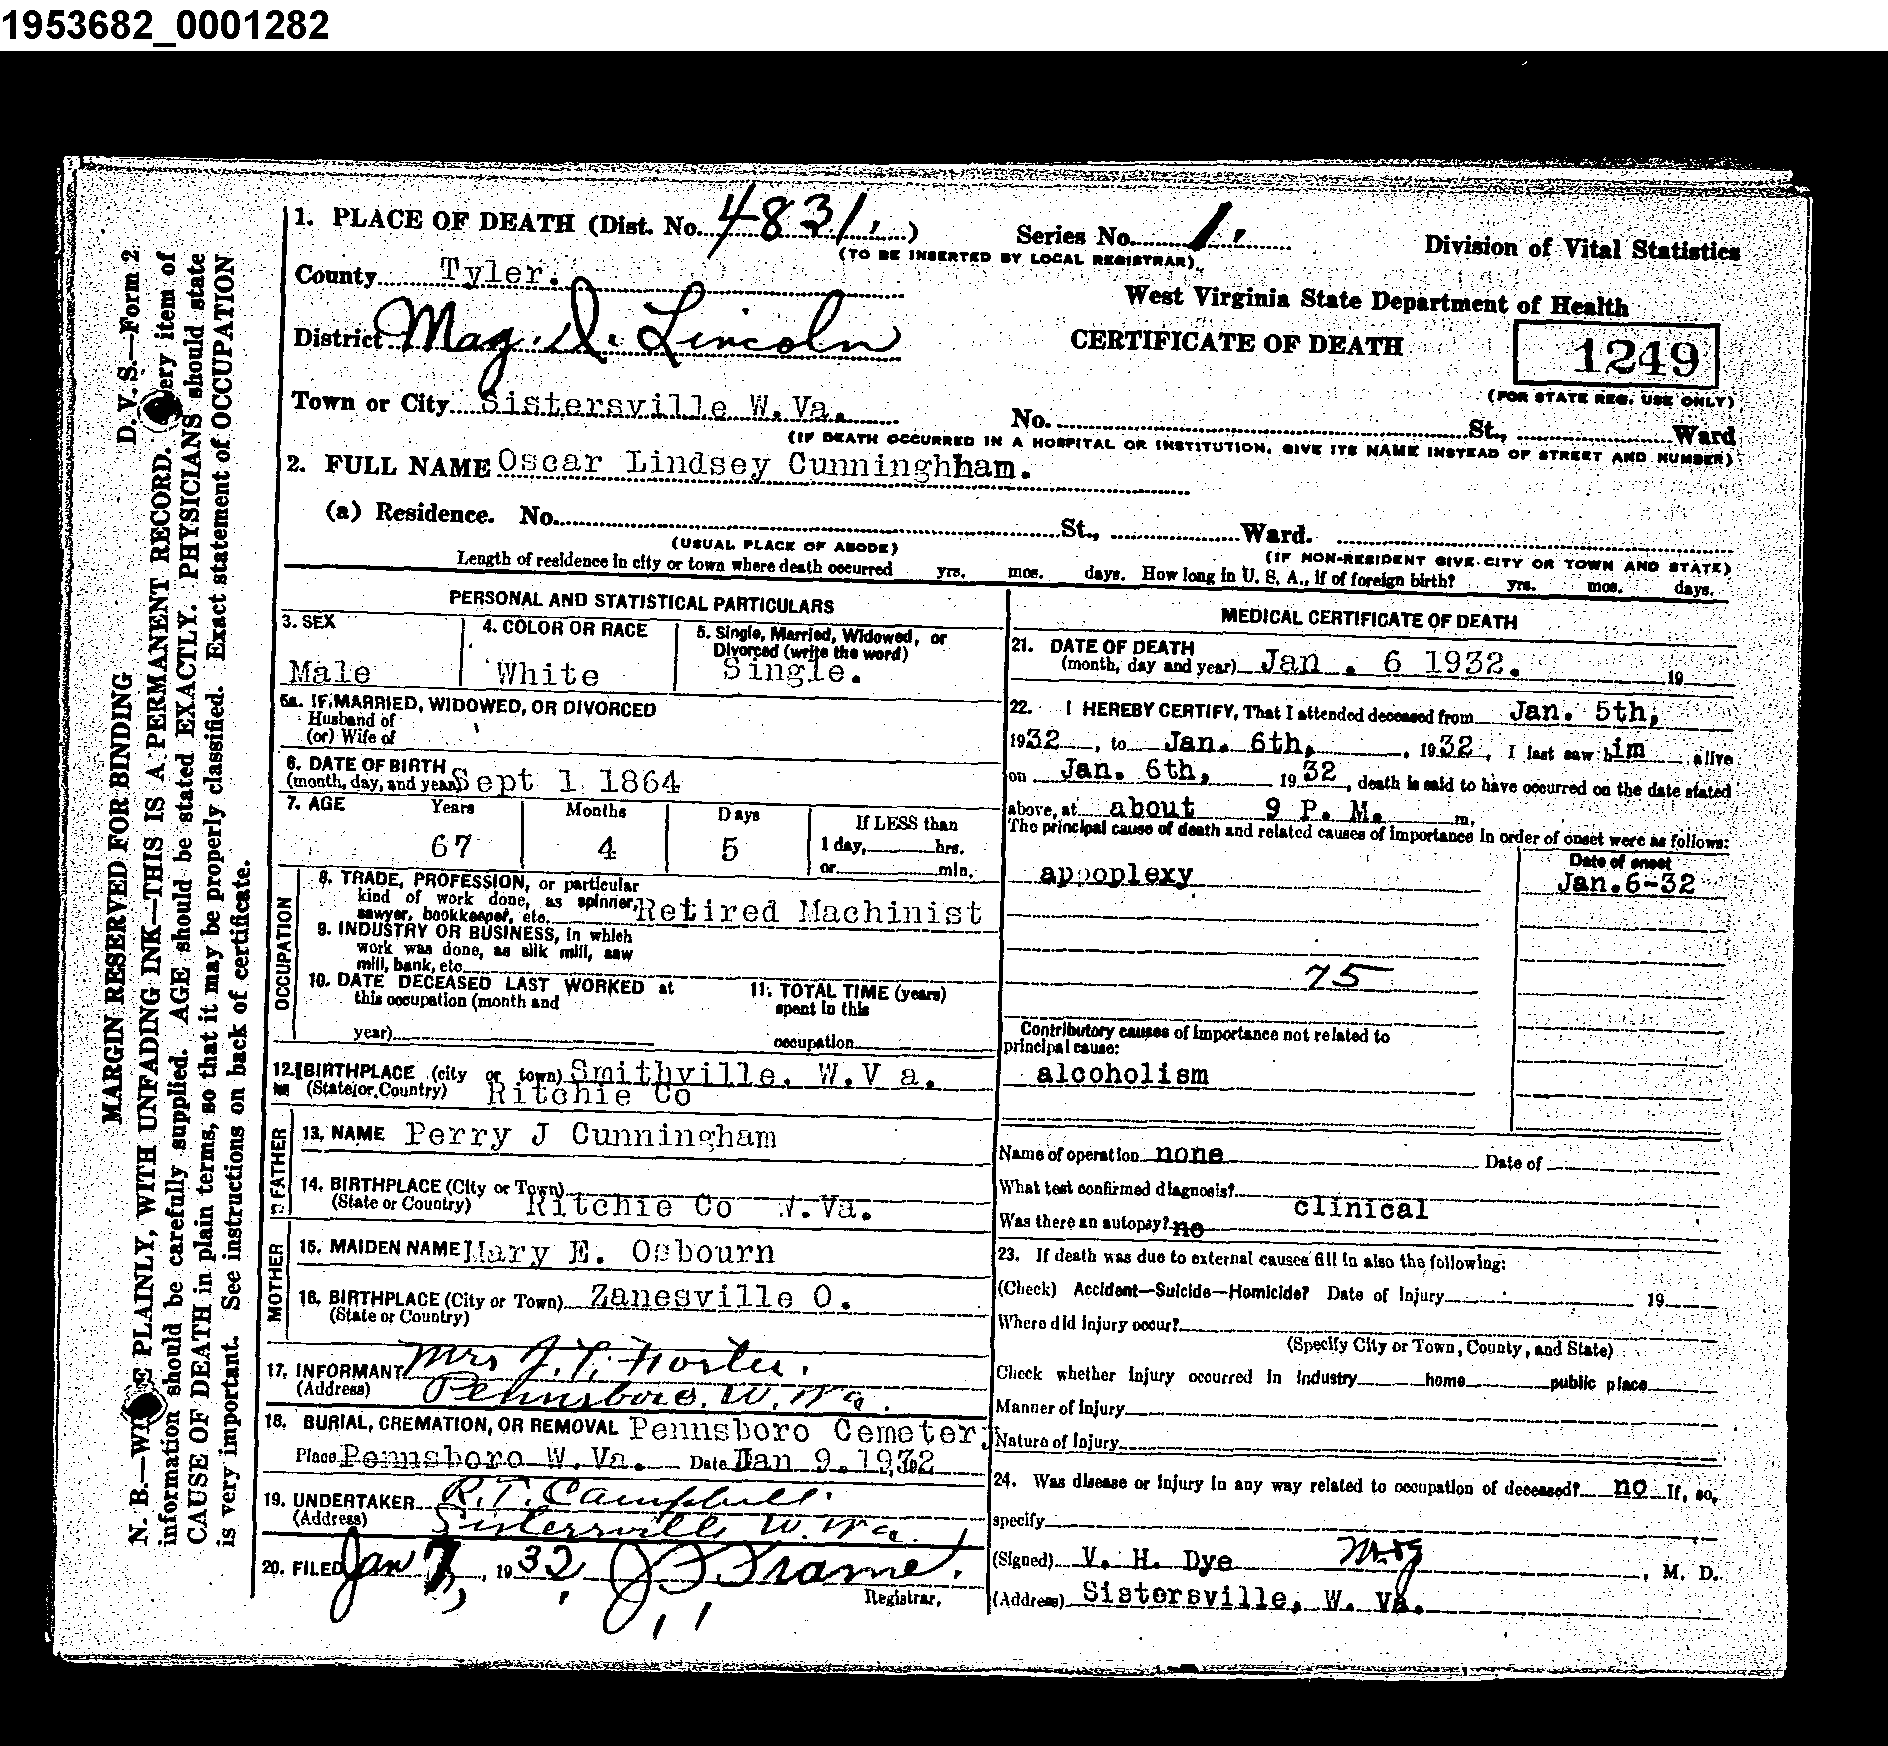 1953682_0001282
1. PLACE OF DEATH (Dist. No. 4831. ) Series No. 1. Division of Vital Statistics
(TO BE INSERTED BY LOCAL REGISTRAR)
County Tyler.
West Virginia State Department of Health
District Mag. D. Lincoln
CERTIFICATE OF DEATH
1249
(FOR STATE REG. USE ONLY)
Town or City Sistersville W.Va. No. St., Ward
(IF DEATH OCCURRED IN A HOSPITAL OR INSTITUTION, GIVE ITS NAME INSTEAD OF STREET AND NUMBER)
2. FULL NAME Oscar Lindsey Cunninghham.
(a) Residence. No. St., Ward.
(USUAL PLACE OF ABODE) (IF NON-RESIDENT GIVE CITY OR TOWN AND STATE)
Length of residence in city or town where death occurred yrs. mos. days. How long in U. S. A., if of foreign birth? yrs. mos. days.
PERSONAL AND STATISTICAL PARTICULARS
3. SEX
Male
4. COLOR OR RACE
White
5. Single, Married, Widowed, or
Divorced (write the word)
Single.
5a. IF MARRIED, WIDOWED, OR DIVORCED
Husband of
(or) Wife of
6. DATE OF BIRTH
(month, day, and year) Sept 1 1864
7. AGE Years Months Days If LESS than
67 4 5 1 day, hrs.
or min.
OCCUPATION
8. TRADE, PROFESSION, or particular
kind of work done, as spinner,
sawyer, bookkeeper, etc. Retired Machinist
9. INDUSTRY OR BUSINESS, in which
work was done, as silk mill, saw
mill, bank, etc.
10. DATE DECEASED LAST WORKED at
this occupation (month and
year)
11. TOTAL TIME (years)
spent in this
occupation
12. BIRTHPLACE (city or town) Smithville, W.V a.
(State or Country) Ritchie Co
FATHER
13. NAME Perry J Cunningham
14. BIRTHPLACE (City or Town)
(State or Country) Ritchie Co W.Va.
MOTHER
15. MAIDEN NAME Mary E. Osbourn
16. BIRTHPLACE (City or Town) Zanesville O.
(State or Country)
17. INFORMANT Mrs J. T.
(Address) Pennsboro, W. Va.
18. BURIAL, CREMATION, OR REMOVAL Pennsboro Cemetery
Place Pennsboro W.Va. Date Jan 9. 1932
19. UNDERTAKER R.T. Campbell.
(Address) Sistersville W. Va.
20. FILED Jan 7, 1932 Frame.
Registrar.
MEDICAL CERTIFICATE OF DEATH
21. DATE OF DEATH
(month, day and year) Jan . 6 1932. 19
22. I HEREBY CERTIFY, That I attended deceased from Jan. 5th,
1932, to Jan. 6th, , 1932, I last saw him alive
on Jan. 6th, 1932, death is said to have occurred on the date stated
above, at about 9 P. M. m.
The principal cause of death and related causes of importance in order of onset were as follows:
Date of onset
appoplexy Jan.6-32
75
Contributory causes of importance not related to
principal cause:
alcoholism
Name of operation none Date of
What test confirmed diagnosis? clinical
Was there an autopsy? no
23. If death was due to external causes fill in also the following:
(Check) Accident—Suicide—Homicide? Date of Injury 19
Where did injury occur?
(Specify City or Town, County, and State)
Check whether injury occurred in industry home public place
Manner of Injury
Nature of Injury
24. Was disease or injury in any way related to occupation of deceased? no If, so,
specify
(Signed) V. H. Dye , M. D.
(Address) Sistersville, W. Va.
MARGIN RESERVED FOR BINDING D. V. S.—Form 2
N. B.—WRITE PLAINLY, WITH UNFADING INK—THIS IS A PERMANENT RECORD. Every item of
information should be carefully supplied. AGE should be stated EXACTLY. PHYSICIANS should state
CAUSE OF DEATH in plain terms, so that it may be properly classified. Exact statement of OCCUPATION
is very important. See instructions on back of certificate.